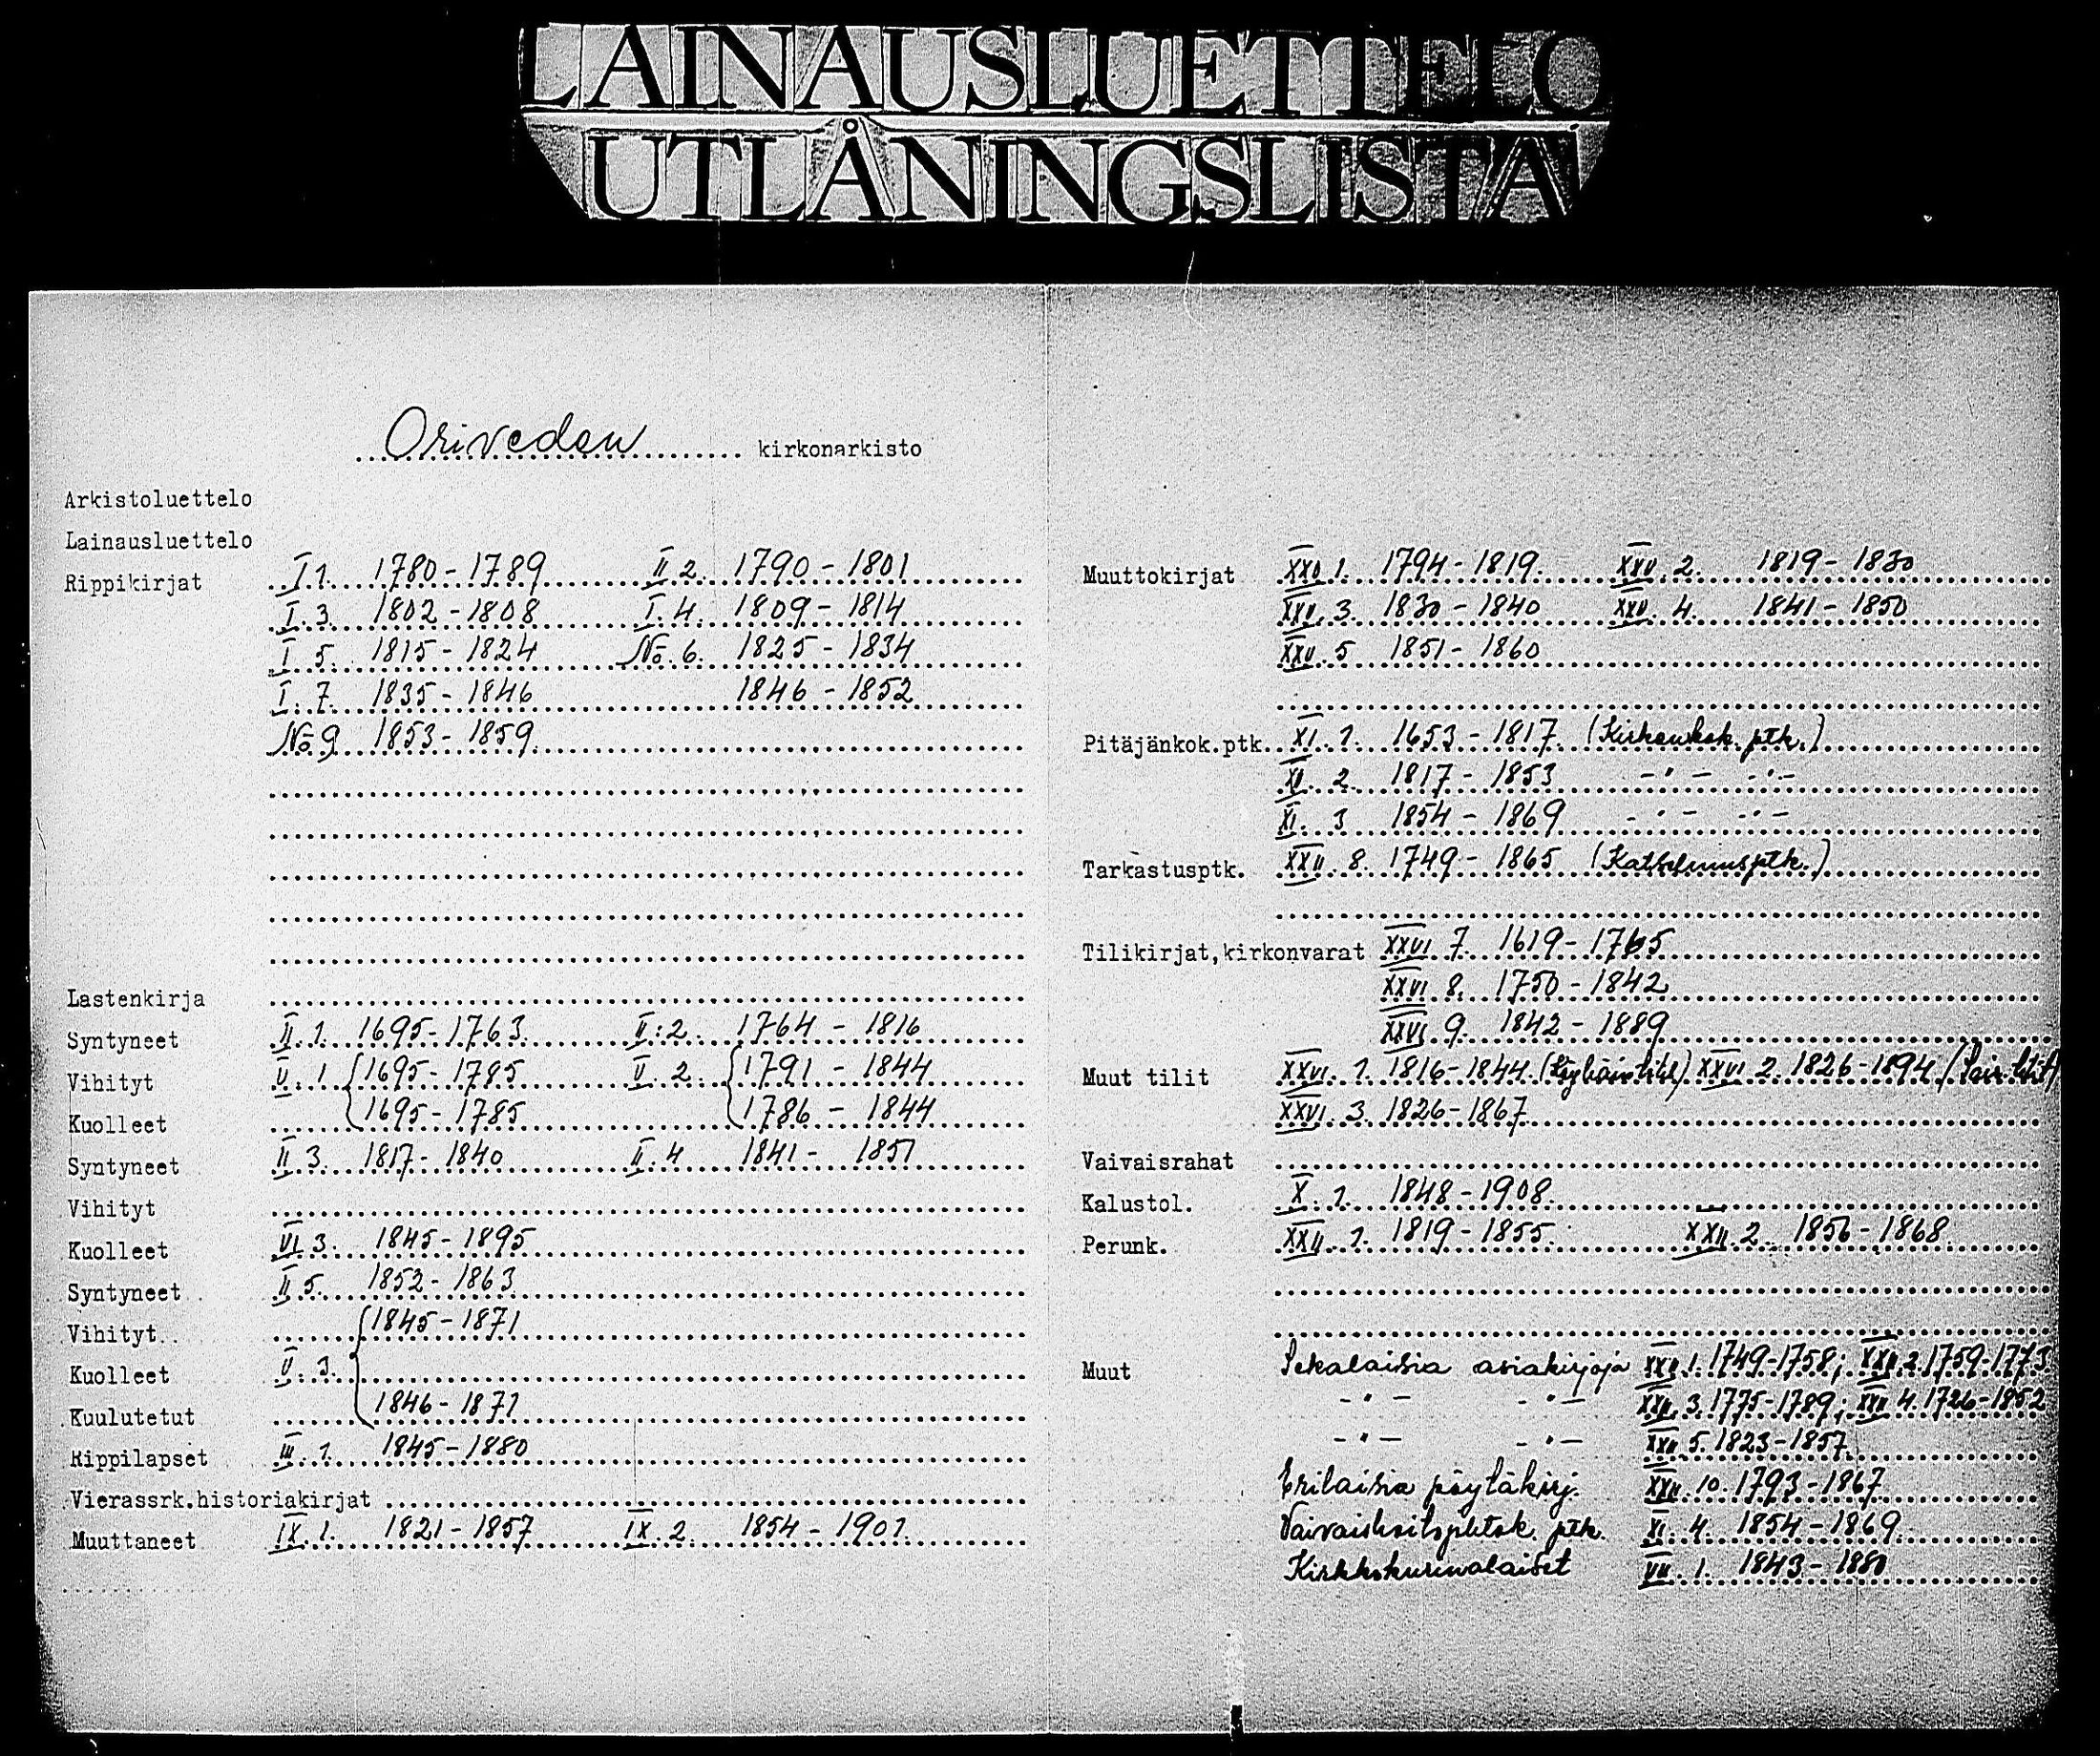 LAINAUSLUETTELO
UTLÅNINGSLISTA
Oriveden kirkonarkisto
Arkistoluettelo
Lainausluettelo
Rippikirjat I 1. 1780-1789 II 2. 1790-1801
I. 3. 1802-1808 I. 4. 1809-1814
I. 5. 1815-1824 No. 6. 1825-1834
I. 7. 1835-1846 1846-1852
No 9 1853-1859
Lastenkirja
Syntyneet II. 1. 1695-1763 II:2. 1764-1816
Vihityt V. 1 1695-1785 V. 2. 1791-1844
Kuolleet 1695-1785 1786-1844
Syntyneet II. 3. 1817-1840 II. 4 1841-1851
Vihityt
Kuolleet VI 3. 1845-1895
Syntyneet II 5. 1852-1863
Vihityt 1845-1871
Kuolleet V. 3.
Kuulutetut 1846-1871
Rippilapset III. 1. 1845-1880
Vierassrk.historiakirjat
Muuttaneet IX. 1. 1821-1857 IX. 2. 1854-1901.
Muuttokirjat XXV 1. 1794-1819. XXV. 2. 1819-1830
XXV. 3. 1830-1840 XXV. 4. 1841-1850
XXV. 5 1851-1860
Pitäjänkok.ptk. XI. 1. 1653-1817. (Kirkonkok. ptk.)
XI. 2. 1817-1853 -"- -"-
XI. 3 1854-1869 -"- -"-
Tarkastusptk. XXII. 8. 1749-1865 (Katselmusptk.)
Tilikirjat,kirkonvarat XXVI. 7. 1619-1765
XXVI. 8. 1750-1842
XXVI. 9. 1842-1889
Muut tilit XXVI. 1. 1816-1844. XXVI 2. 1826-1894.
XXVI. 3. 1826-1867
Vaivaisrahat
Kalustol. X. 1. 1848-1908.
Perunk. XXII. 1. 1819-1855. XXII. 2. 1856-1868.
Muut Sekalaisia asiakirjoja XXII 1. 1749-1758; XXII. 2. 1759-1773
-"- -"- XXII. 3. 1775-1789; XXII 4. 1726-1852
-"- -"- XXII 5. 1823-1857.
Erilaisia pöytäkirj. XXII. 10. 1793-1867
ptk. XI. 4. 1854-1869.
Kirkkokurinalaiset VII. 1. 1843-1880